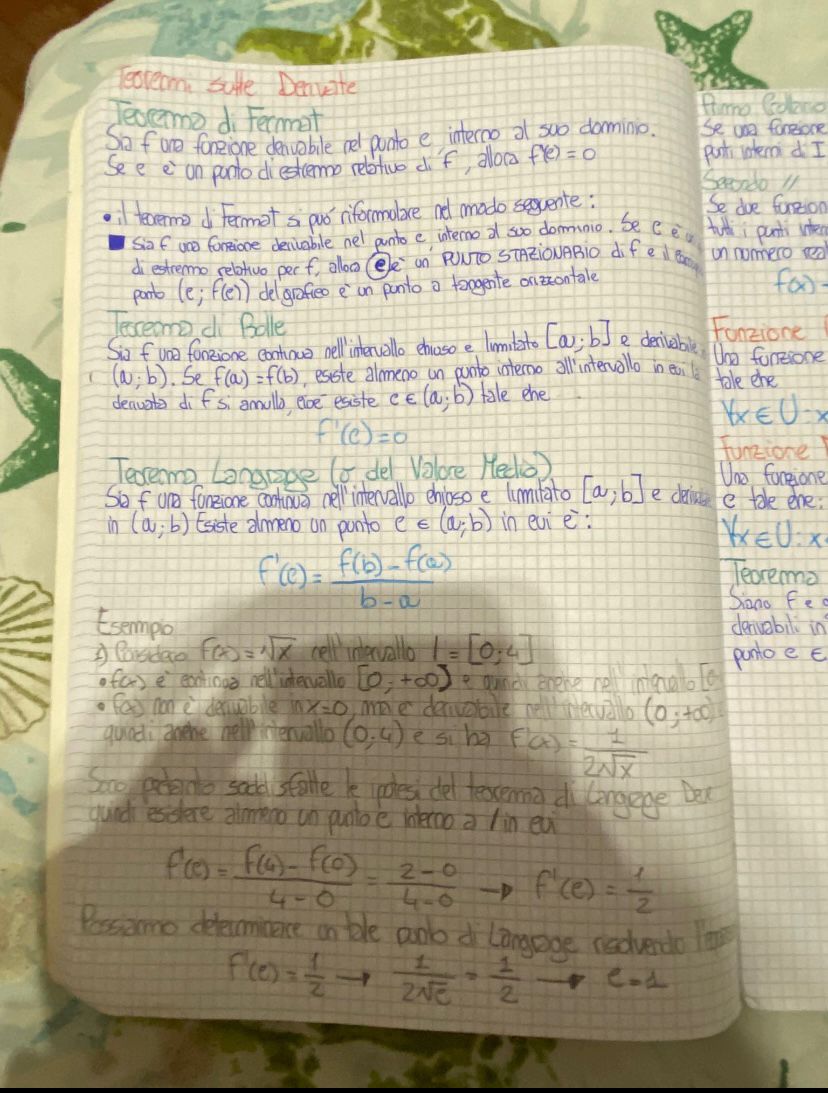 Teoremi sulle Derivate
Teorema di Fermat
Sia f una funzione derivabile nel punto c, interno al suo dominio.
Se c è un punto di estremo relativo di f, allora f'(c) = 0
• il teorema di Fermat si può riformulare nel modo seguente:
■ Sia f una funzione derivabile nel punto c, interno al suo dominio. Se c è
di estremo relativo per f, allora c è un PUNTO STAZIONARIO di f e il
punto (c; f(c)) del grafico è un punto a tangente orizzontale
Teorema di Rolle
Sia f una funzione continua nell'intervallo chiuso e limitato [a; b] e derivabile
(a; b). Se f(a) = f(b), esiste almeno un punto interno all'intervallo in cui la
derivata di f si annulla, cioè esiste c ∈ (a; b) tale che
f'(c) = 0
Teorema Langrage (o del Valore Medio)
Sia f una funzione continua nell'intervallo chiuso e limitato [a; b] e
in (a; b) Esiste almeno un punto c ∈ (a; b) in cui è:
f'(c) = f(b) - f(a) / b - a
Esempio
1) Considero f(x) = √x nell'intervallo I = [0; 4]
• f(x) è continua nell'intervallo [0; +∞) e quindi anche nell'intervallo
• f(x) non è derivabile in x = 0, ma è derivabile nell'intervallo (0; +∞)
quindi anche nell'intervallo (0; 4) e si ha f'(x) = 1 / 2√x
Sono pertanto soddisfatte le ipotesi del teorema di Langrage Deve
quindi esistere almeno un punto c interno a I in cui
f'(c) = f(4) - f(0) / 4 - 0 = 2 - 0 / 4 - 0 → f'(c) = 1/2
Possiamo determinare un tale punto di Langrage risolvendo
f'(c) = 1/2 → 1 / 2√c = 1/2 → c = 1
Primo
Se una funzione
punti interni di I
Secondo //
Se due funzion
tutti i punti inter
un numero
f(x) -
Funzione
Una funzione
tale che
∀x ∈ U: x
Funzione
Una funzione
e tale che:
∀x ∈ U: x
Teorema
Siano f e
derivabili in
punto c ∈